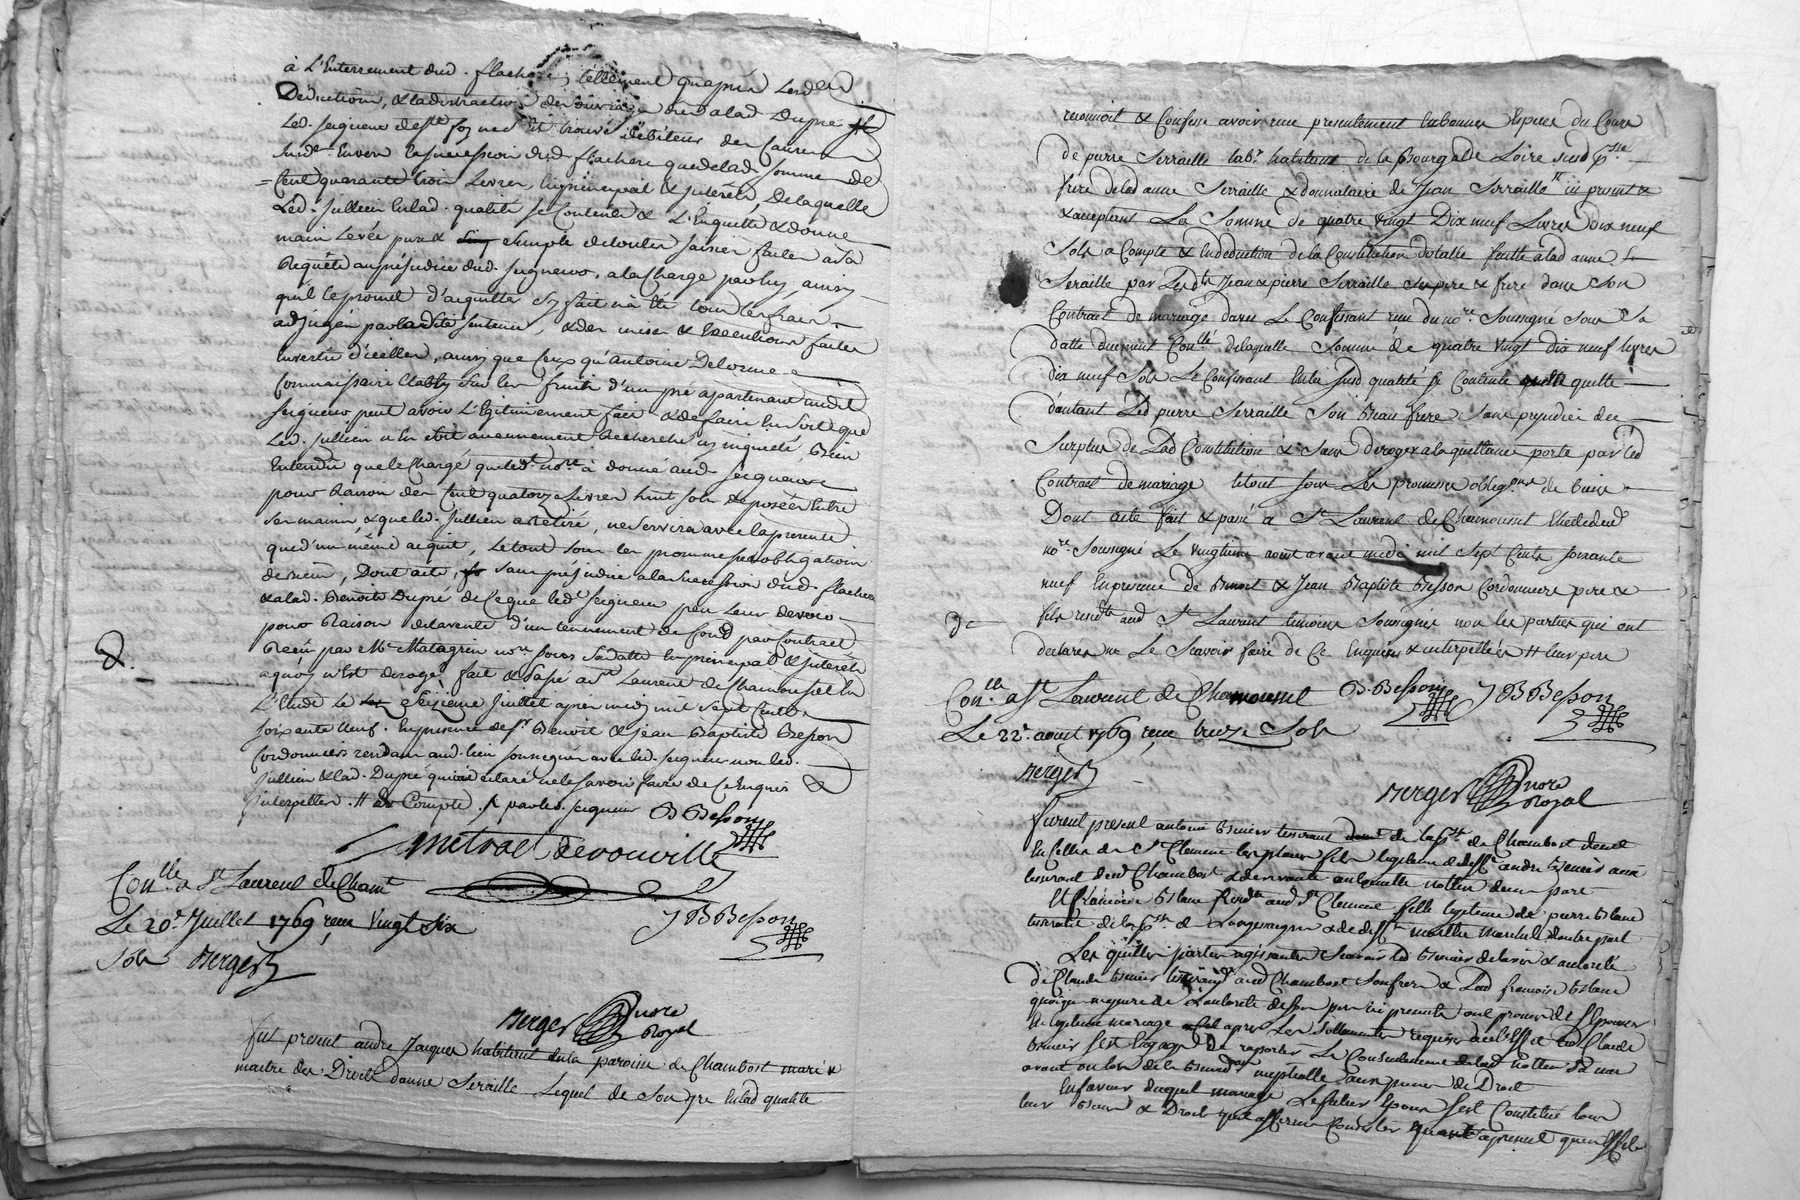 à L'Enterrement dud. flachere, tellement qu'après Lesd.
Deductions, & la distraction des ouvrages dud alad Dupré
Led. seigneur de st foy nest trouvé debiteur des Causes
susd. Envers la succession dud flachere que de lad somme de
Cent quarante trois Livres, En principal & Interets, De laquelle
Led. Jullien En lad. qualité se Contente & L'Enquitte & donne
main levée pure & simple de toutes saisies faites a sa
Requête au prejudice dud. seigneur, a la Charge par luy, ainsy
qu'il le promet d'acquitter sy fait n'a été tous les frais
adjugés par ladite sentence, & des mises & Executions faites
En vertu d'icelles, ainsy que Ceux qu'antoine Delorme
Commissaire Etably sur les fruits d'un pré apartenant audit
seigneur peut avoir Legitimement fait & de faire En sorte que
Led. Jullien n'En soit aucunement Recherché ny inquieté, Bien
Entendu que le Chargé que led. nore à donné aud. seigneur
pour Raison des Cent quatorze Livres huit sols deposées Entre
ses mains & que led. Jullien a Retiré, ne servira avec la presente
que d'un même acquit, Le tout sous les promesses obligations
de biens, Dont acte, sans prejudice a la succession dud. flachere
& alad. Benoite Dupré de Ce que led. seigneur peu Leur devoir
pour Raison de la vente d'un tenement de fond par Contract
Reçu par Me Matagrin nore sous sa datte En principal & Interets
a quoy n'Est derogé, fait & Passé a st Laurent de Chamousset En
L'Etude Le seizieme Juillet après midy mil sept Cents
soixante neuf. En presence de sr Benoit & jean Baptiste Besson
Cordonniers rendans aud. lieu soussignés avec led. seigneur non led.
Jullien & lad. Dupré qui ont declaré ne le savoir faire de Ce Enquis &
Interpellés. // de Compte. par led. seigneur B Besson
Metrael devouville
Conlle a St Laurent de Chamt
Le 20e Juillet 1769 reçu Vingt Six
Sols Berger
J B Besson
Berger nore
Royal
fut present andre Jacques habitant en la paroisse de Chambost mari &
maitre des Droits danne Seraille Lequel de son gré En lad qualité
reconnoit & Confesse avoir reçu presentement En bonnes Especes du Cours
de pierre Serraille labr habitant de la Bourgade Loire susd psse
frere de lad anne Serraille & donnataire de Jean Serraille icy present &
& acceptent La Somme de quatre vingt Dix neuf Livres dix neuf
Sols a Compte & En deduction de la Constitution dotalle faitte a lad anne
Seraille par Lesdts Jean & pierre Serraille ses pere & frere dans Son
Contrat de mariage davec Le Confessant reçu du nore Soussigné Sous Sa
datte duement Conllé de laquelle Somme de quatre vingt dix neuf livres
dix neuf Sols Le Confessant En la Susd qualité se Contente quitte
d'autant Led pierre Serraille Son Beau frere Sans prejudice du
Surplus de Lad Constitution & Sans deroger a la quittance porté par led
Contract de mariage le tout Sous Les promesses obligons de biens
Dont acte fait & passé a St Laurent de Chamousset Etude dud
nore Soussigné Le Vingtieme aoust avant midi mil Sept Cents Soixante
neuf En presence de Benoit & Jean Baptiste Besson Cordonniers pere &
fils residts aud St Laurent temoins Soussignés non les parties qui ont
declarés ne Le Scavoir faire de Ce Enquises & interpellées // leur pere
Conlle a St Laurent de Chamousset B. Besson J B Besson
Le 22e aoust 1769 reçu treize Sols
Berger
Berger nore
Royal
furent present antoine Bruier tisserand de la psse de Chambost
En Celles de St Clement les places fils legitime de deft andre Bruier aussi
tisserand dud Chambost & de vivante antoinette Notter d'une part
Et francoise Blanc residte aud St Clement fille legitime de pierre Blanc
tisserand de la psse de Longessaigne & de defte Marthe Marchel dautre part
Les quelles parties agissantes Scavoir led Bruier de lavis & autorité
de Claude Bruier tisserand aud Chambost Son frere & Lad francoise Blanc
quoique majeure de L'autorité de Son pere ici present ont promis de S'Epouser
En legitime mariage apres Les Sollemnités requises
Bruier Sest Engagé De raporter Le Consentement de lad Notter Sa mere
avant ou lors de la Benedon nuptialle Sous peine de Droit
En faveur duquel mariage Le futur Epoux Sest Constitué tous
Ses biens & Droits